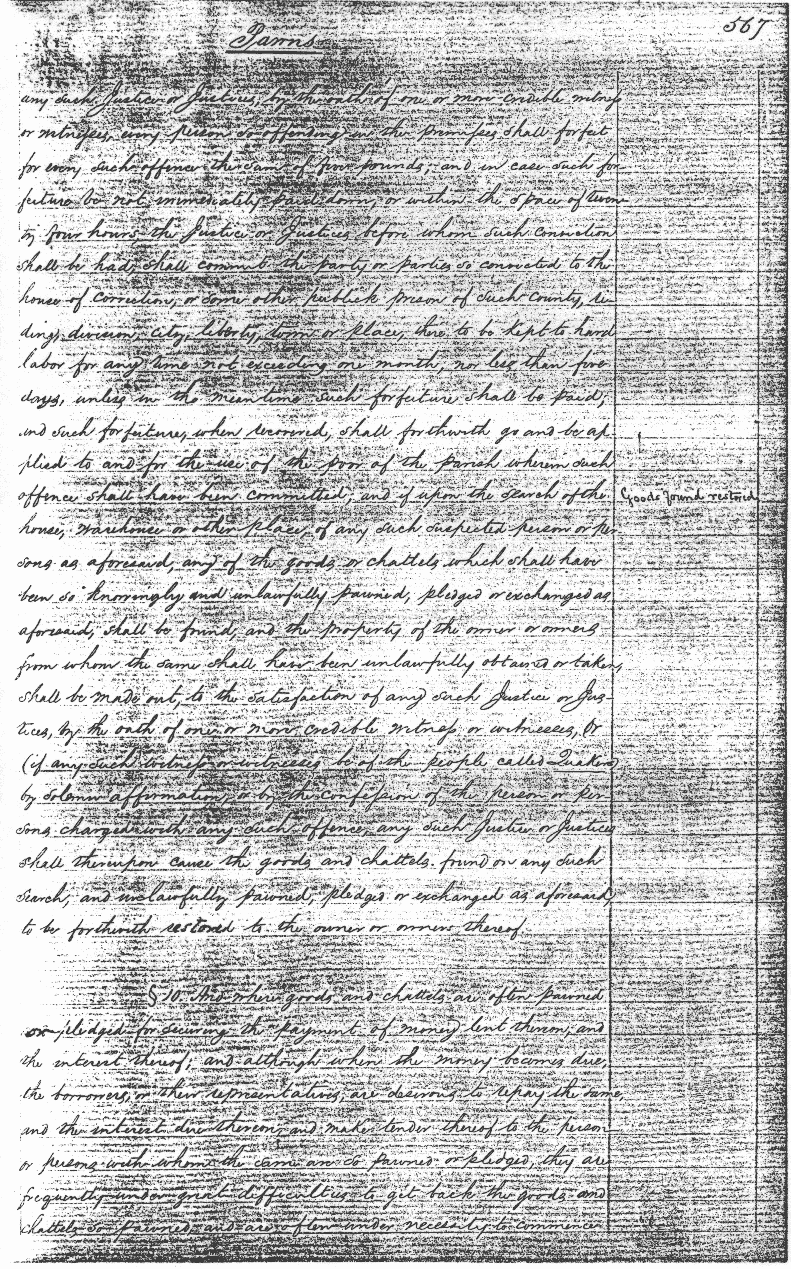 567
Pawns
any such Justice or Justices, by the oath of one or more credible witness
or witnesses, every person so offending in the premises, shall forfeit
for every such offence the sum of five pounds; and in case such for
feiture be not immediately paid down, or within the space of twen-
ty four hours, the Justice or Justices before whom such conviction
shall be had, shall commit the party or parties so convicted to the
house of correction, or some other publick prison of such County, ri
ding, division, city, liberty, town or place, there to be kept to hard
labor for any time not exceeding one month, nor less than five
days, unless in the meantime such forfeiture shall be paid;
and such forfeiture, when recovered, shall forthwith go and be ap-
plied to and for the use of the poor of the parish wherein such
offence shall have been committed; and if upon the search of the
Goods found restored
house, warehouse or other place, of any such suspected person or per
sons as aforesaid, any of the goods or chattels which shall have
been so knowingly and unlawfully pawned, pledged or exchanged as
aforesaid, shall be found, and the property of the owner or owners
from whom the same shall have been unlawfully obtained or taken,
shall be made out, to the satisfaction of any such Justice or Jus-
tices, by the oath of one or more credible witness or witnesses, or
(if any such witness or witnesses be of the people called Quakers)
by solemn affirmation, or by the confession of the person or per
sons charged with any such offence, any such Justice or Justices
shall thereupon cause the goods and chattels found on any such
search, and unlawfully pawned, pledged or exchanged as aforesaid,
to be forthwith restored to the owner or owners thereof.
§ 10. And where goods and chattels are often pawned
or pledged for securing the payment of money lent thereon, and
the interest thereof; and although when the money becomes due,
the borrowers, or their representatives, are desirous to repay the same,
and the interest due thereon, and make tender thereof to the person
or persons with whom the same are so pawned or pledged, they are
frequently under great difficulties to get back the goods and
chattels so pawned, and are often under necessity to commence